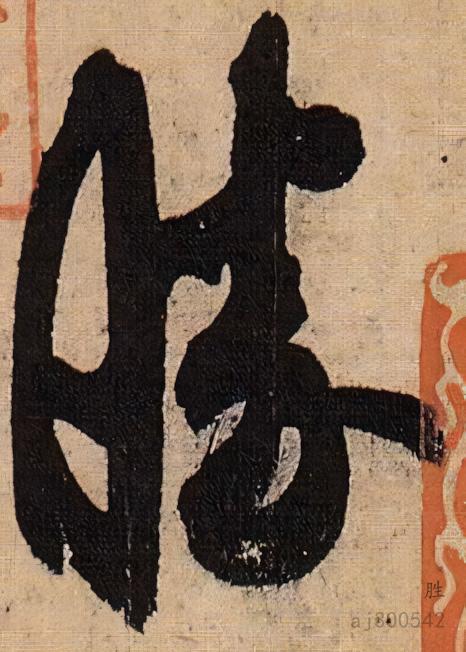 勝
胜
aj800542